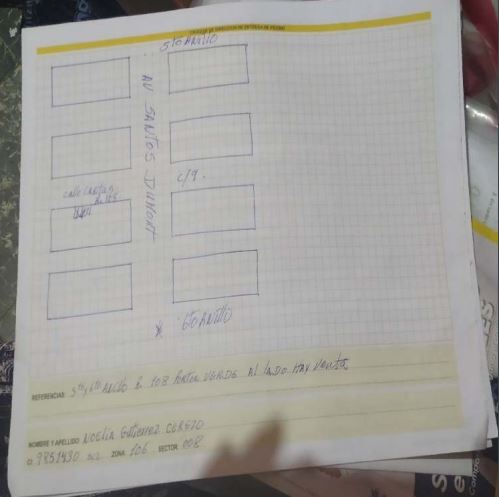 CROQUIS DE DIRECCION DE ENTREGA DE PEDIDO
5to ANILLO
AV SANTOS DUMONT
C/9.
calle
6to ANILLO
REFERENCIAS: 5to y 6to ANILLO B 108 PORTON VERDE AL LADO HAY VENTA
NOMBRE Y APELLIDO: NOELIA GUTIERREZ CEREZO
9851430 SCZ ZONA: 106 SECTOR: 008